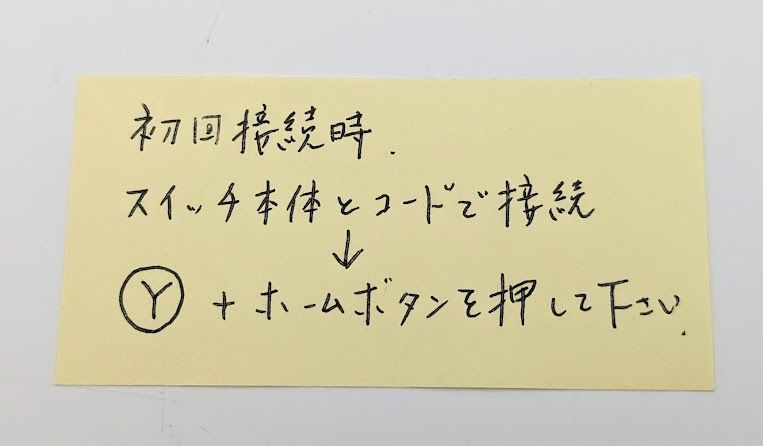 初回接続時.
スイッチ本体とコードで接続
↓
Ⓨ + ホームボタンを押して下さい.